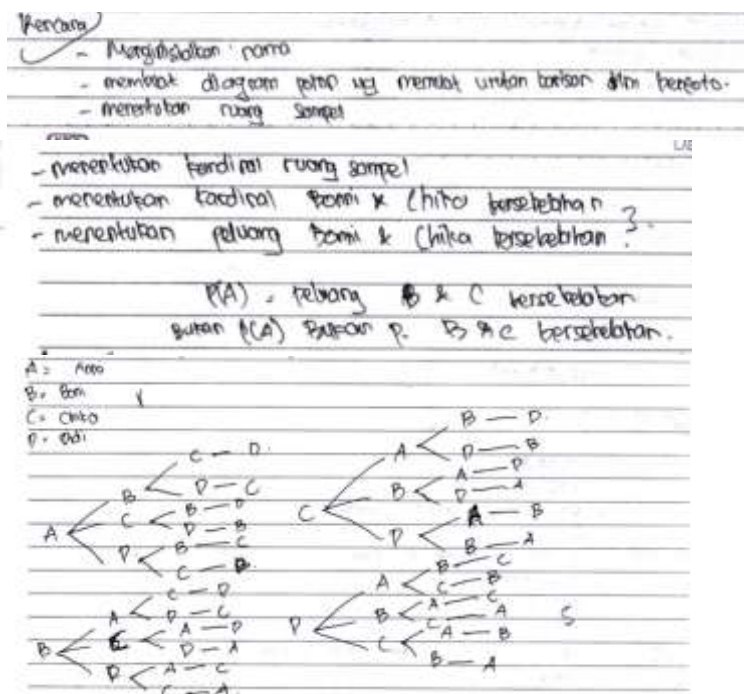 Rencana
- Mengmisalkan nama
- membuat diagram pohon yg memuat urutan barisan dlm berfoto.
- menentukan ruang sampel
- menentukan kardinal ruang sampel
- menentukan kardinal Bomi & Chika bersebelahan
- menentukan peluang Bomi & Chika bersebelahan ?
P(A) = peluang B & C bersebelahan
Bukan P(A) Bukan p. B & C bersebelahan.
A =
B = Bomi
C = Chika
D = Didi
A B C - D
D - C
C B - D
D - B
D B - C
C - B
B A C - D
D - C
C A - D
D - A
D A - C
C - A
C A B - D
D - B
B A - D
D - A
D A - B
B - A
D A B - C
C - B
B A - C
C - A
C A - B
B - A
S